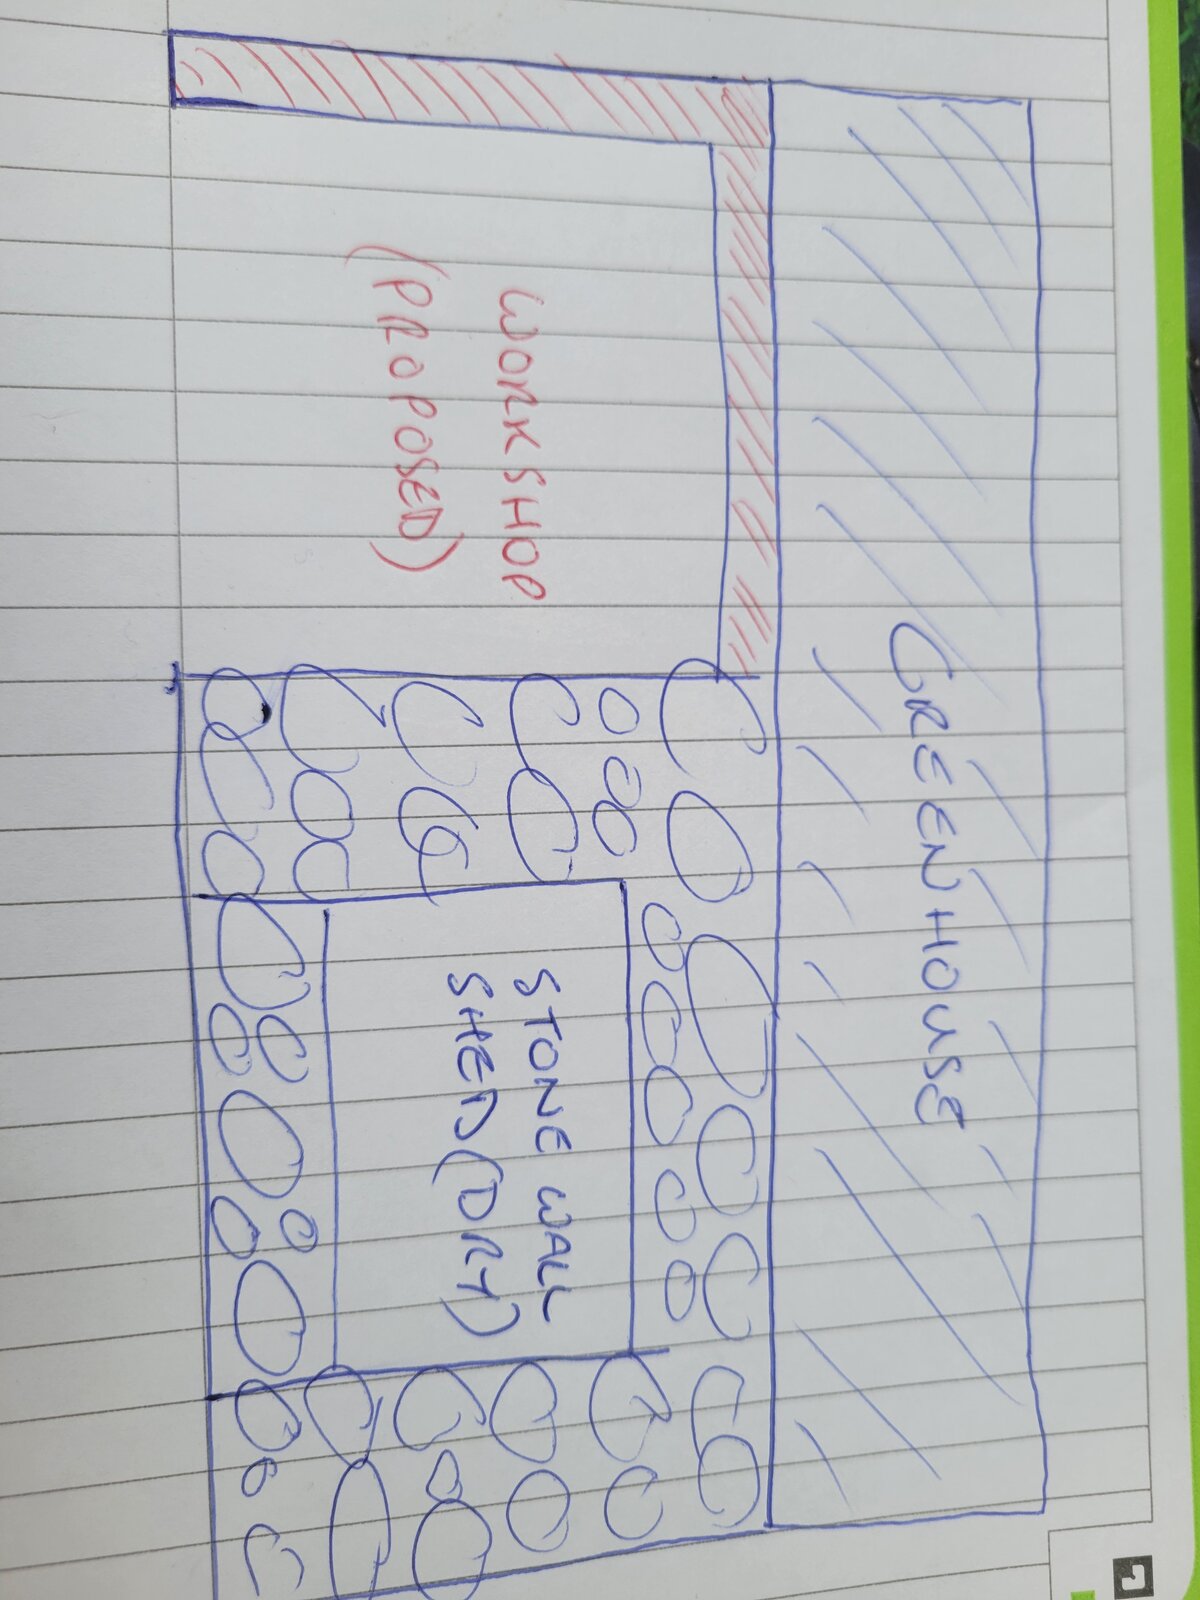 GREENHOUSE
WORKSHOP
(PROPOSED)
STONE WALL
SHED (DRY)